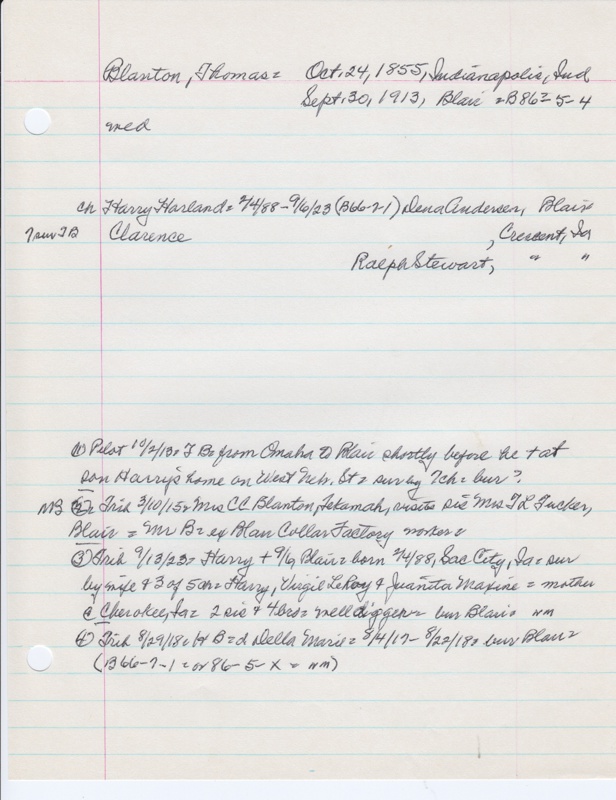 Blanton, Thomas = Oct. 24, 1855, Indianapolis, Ind
Sept. 30, 1913, Blair = B86-5-4
med
ch Harry Harland = 2/4/88 - 9/6/23 (B66-7-1) Dena Andersen, Blair
7 sur TB Clarence , Crescent, Ia
Ralph Stewart, " "
(1) Pilot 10/2/13 = T B = from Omaha to Blair shortly before he + at
son Harry's home on West Neb. St = sur by 7 ch = bur ?
NB (2) = Trib 3/10/15 = Mrs CC Blanton, Tekamah, visits sis Mrs T L Tucker,
Blair = Mr B = ex Blair Collar Factory worker =
(3) Trib 9/13/23 = Harry + 9/6 Blair = born 2/4/88, Sac City, Ia = sur
by wife & 3 of 5 ch = Harry, Virgil LeRoy & Juanita Maxine = mother
@ Cherokee, Ia = 2 sis & 4 bros = well digger = bur Blair = nm
(4) Trib 8/29/18 = H B = d Della Marie = 8/4/17 - 8/22/18 = bur Blair =
(B66-7-1 = or 86-5-X = nm)